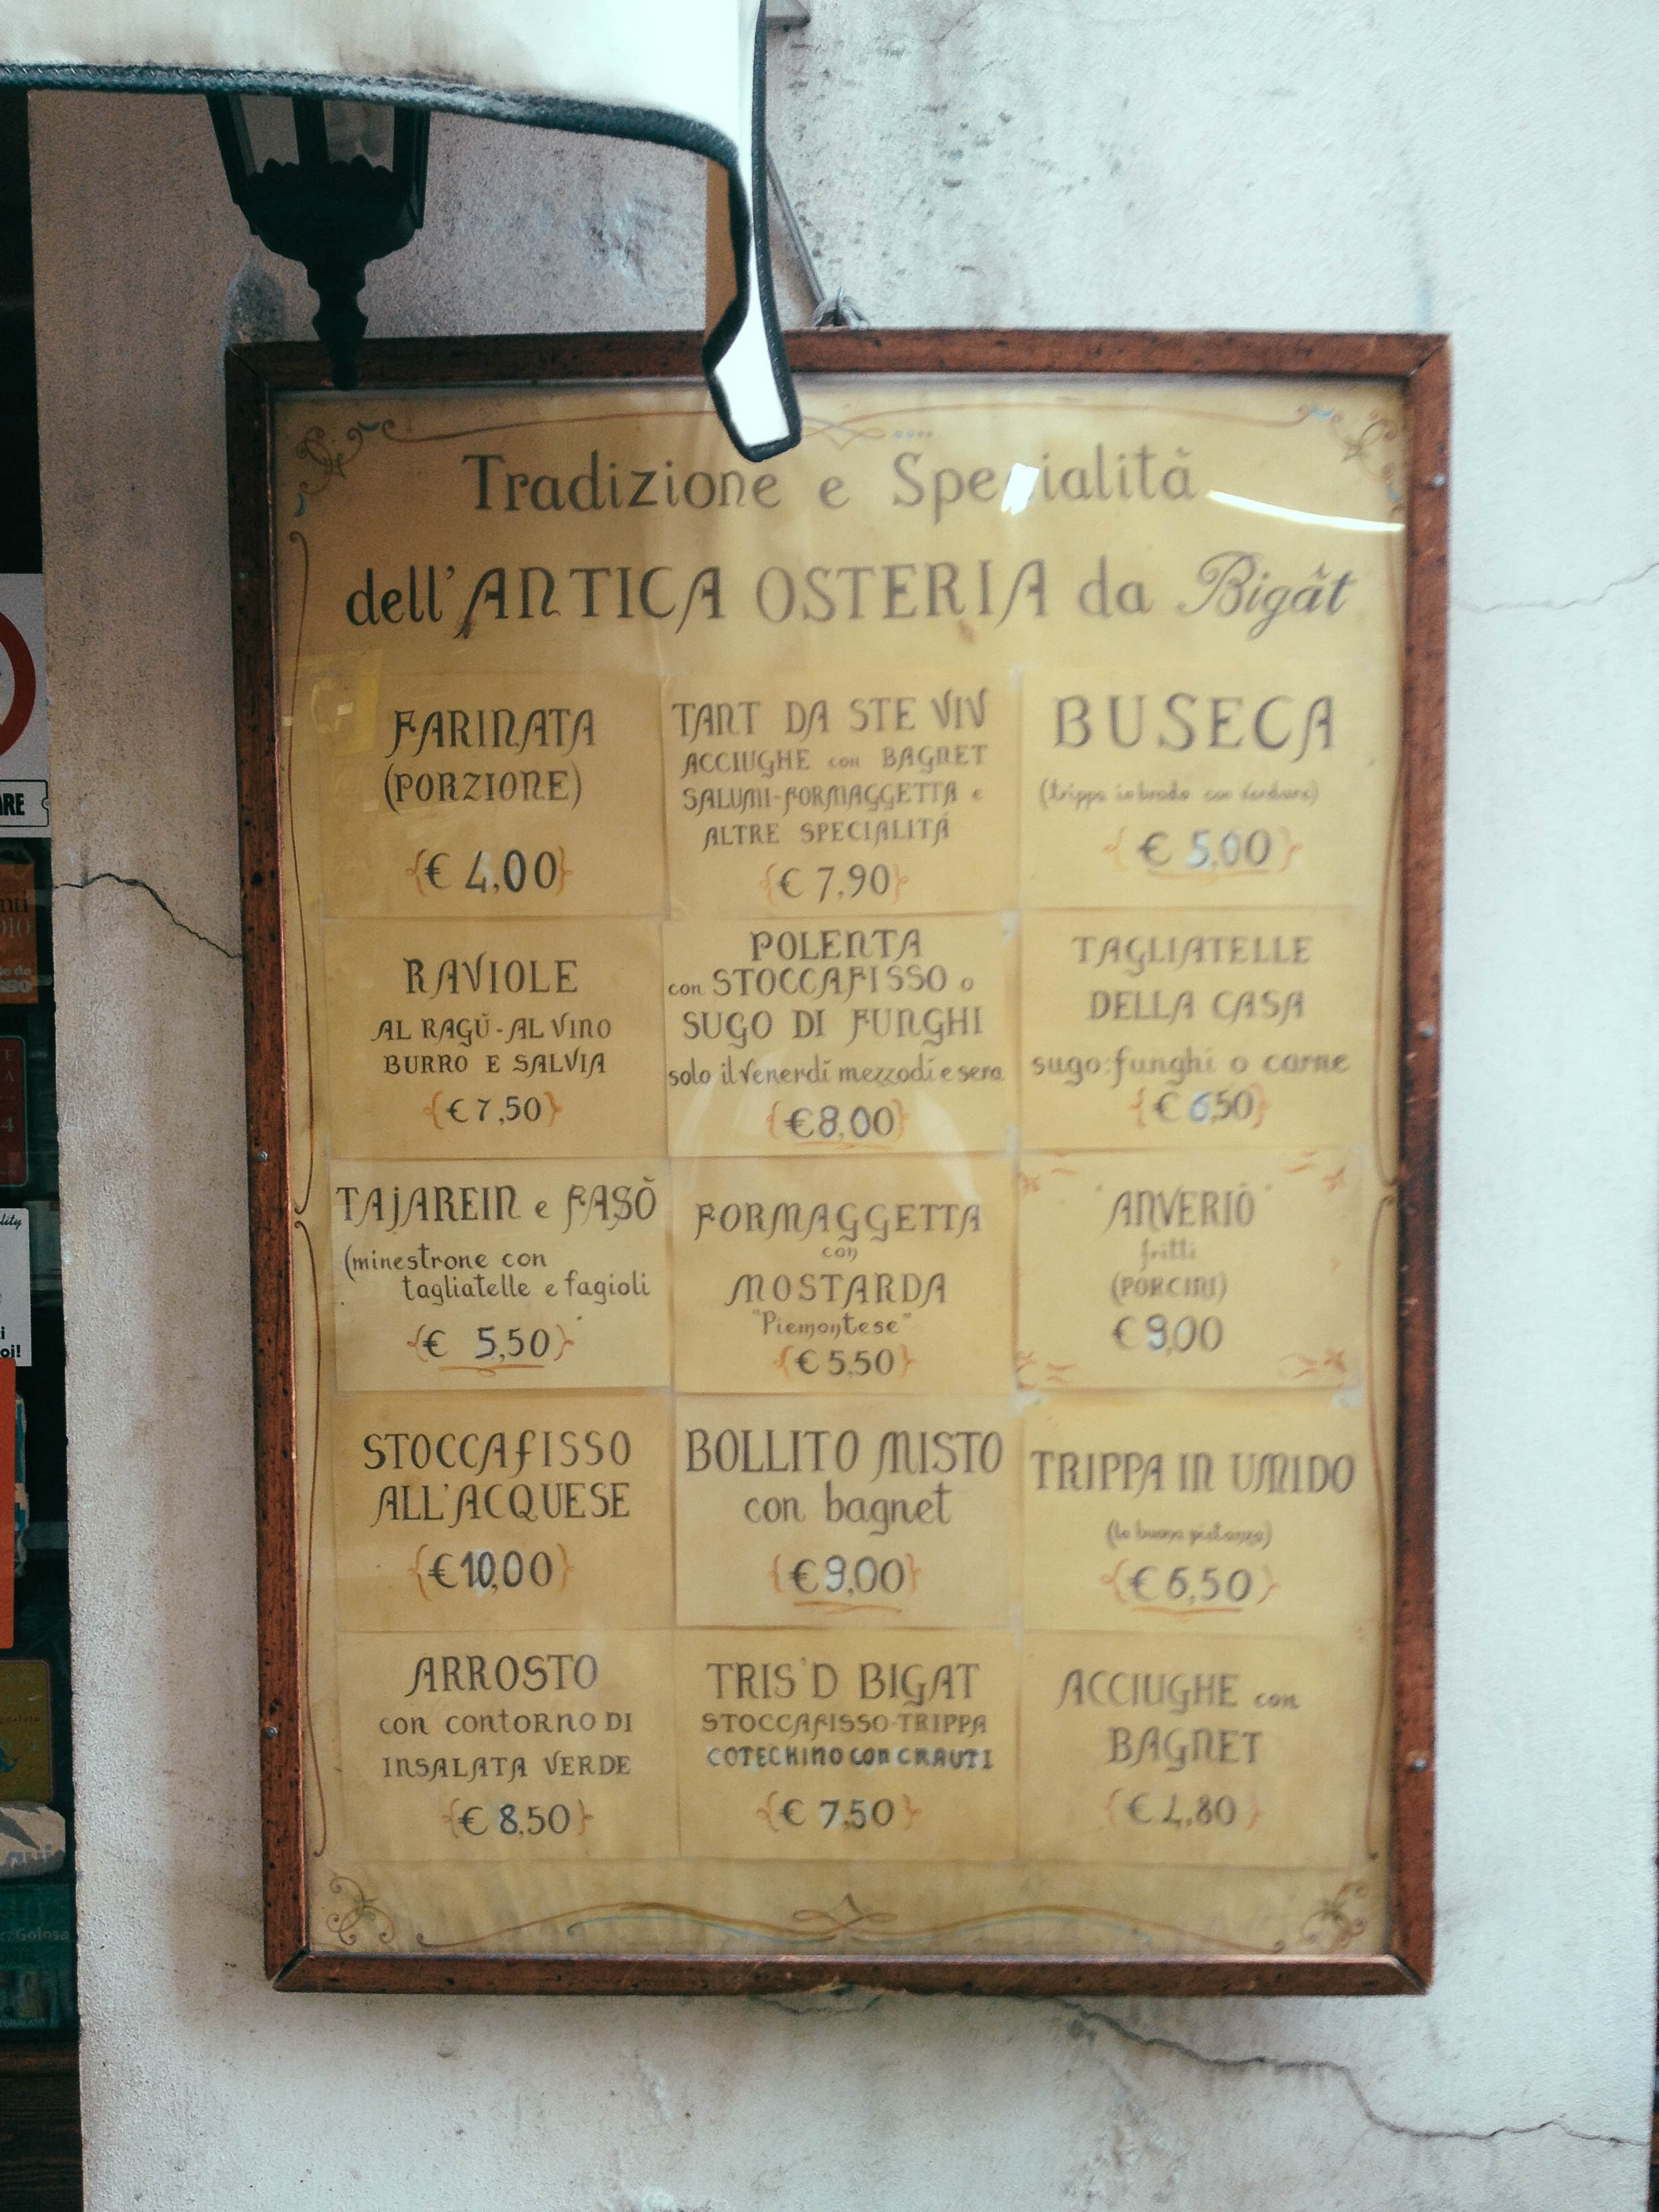 Tradizione e Specialità
dell'ANTICA OSTERIA da Bigât
FARINATA
(PORZIONE)
€ 4,00
TANT DA STE VIV
ACCIUGHE con BAGNET
SALUMI-FORMAGGETTA e
ALTRE SPECIALITÀ
€ 7,90
BUSECA
(trippa in brodo con verdure)
€ 5,00
RAVIOLE
AL RAGÙ-AL VINO
BURRO E SALVIA
€ 7,50
POLENTA
con STOCCAFISSO o
SUGO DI FUNGHI
solo il Venerdi mezzodi e sera
€ 8,00
TAGLIATELLE
DELLA CASA
sugo:funghi o carne
€ 6,50
TAJAREIN e FASÒ
(minestrone con
tagliatelle e fagioli
€ 5,50
FORMAGGETTA
con
MOSTARDA
"Piemontese"
€ 5.50
'ANVERIÓ'
fritti
(PORCINI)
€ 9,00
STOCCAFISSO
ALL'ACQUESE
€ 10,00
BOLLITO MISTO
con bagnet
€ 9,00
TRIPPA IN UMIDO
(la buona pietanza)
€ 6,50
ARROSTO
con contorno DI
INSALATA VERDE
€ 8,50
TRIS'D BIGAT
STOCCAFISSO-TRIPPA
COTECHINO con CRAUTI
€ 7,50
ACCIUGHE con
BAGNET
€ 4,80